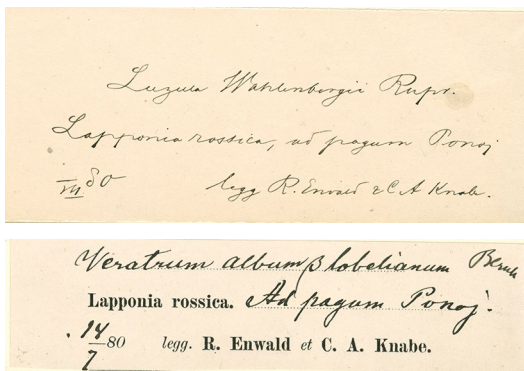 Luzula Wahlenbergii Rupr.
Lapponia rossica, ad pagum Ponoj
VII 80 legg R. Enwald & C A Knabe.
Veratrum album β lobelianum Bernh
Lapponia rossica. Ad pagum Ponoj.
14/7 80 legg. R. Enwald et C. A. Knabe.